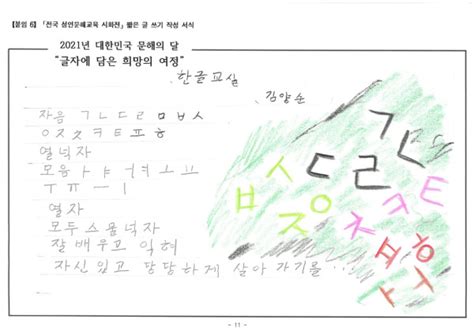 【붙임 6】「전국 성인문해교육 시화전」 짧은 글 쓰기 작성 서식
2021년 대한민국 문해의 달
"글자에 담은 희망의 여정"
한글교실
김양순
자음 ㄱㄴㄷㄹㅁㅂㅅ
ㅇㅈㅊㅋㅌㅍㅎ
열넉자
모음 ㅏㅑㅓㅕㅗㅛ
ㅜㅠㅡㅣ
열자
모두스물넉자
잘배우고 익혀
자신있고 당당하게 살아가기를...
- 11 -